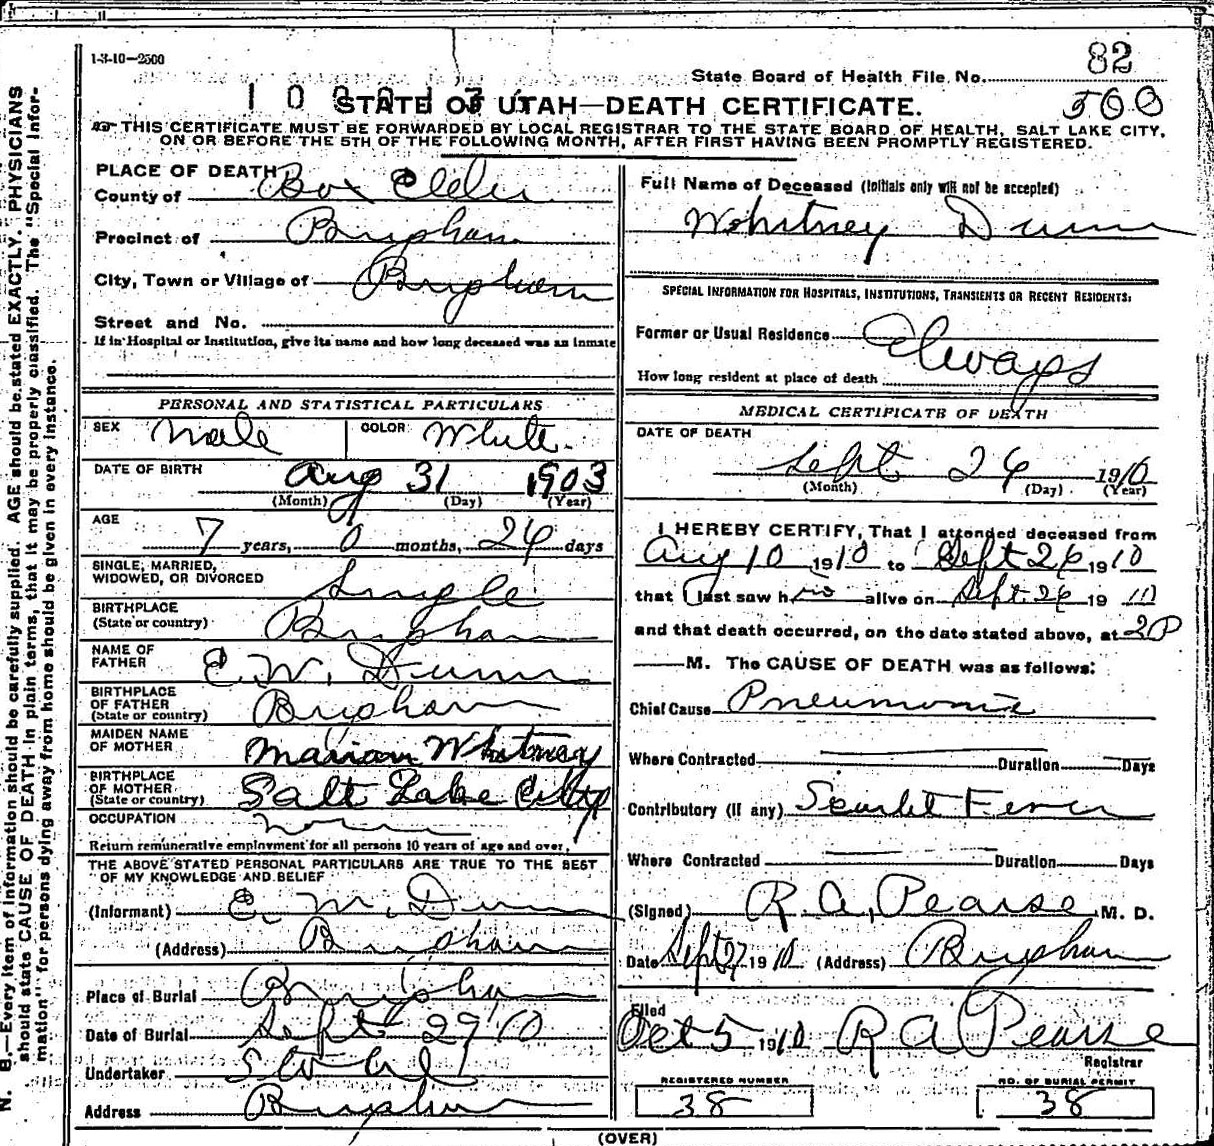 1-3-10—2500
82
State Board of Health File No.
500
STATE OF UTAH—DEATH CERTIFICATE.
THIS CERTIFICATE MUST BE FORWARDED BY LOCAL REGISTRAR TO THE STATE BOARD OF HEALTH, SALT LAKE CITY,
ON OR BEFORE THE 5TH OF THE FOLLOWING MONTH, AFTER FIRST HAVING BEEN PROMPTLY REGISTERED.
PLACE OF DEATH
County of Box Elder
Precinct of Brigham
City, Town or Village of Brigham
Street and No.
If in Hospital or Institution, give its name and how long deceased was an inmate
PERSONAL AND STATISTICAL PARTICULARS
SEX Male COLOR White.
DATE OF BIRTH Aug 31 1903
(Month) (Day) (Year)
AGE 7 years, 0 months, 26 days
SINGLE, MARRIED,
WIDOWED, OR DIVORCED Single
BIRTHPLACE
(State or country) Brigham
NAME OF
FATHER E. W. Dunn
BIRTHPLACE
OF FATHER
(State or country) Brigham
MAIDEN NAME
OF MOTHER Marian Whitney
BIRTHPLACE
OF MOTHER
(State or country) Salt Lake City
OCCUPATION
Return remunerative employment for all persons 10 years of age and over.
THE ABOVE STATED PERSONAL PARTICULARS ARE TRUE TO THE BEST
OF MY KNOWLEDGE AND BELIEF
(Informant) E. W. Dunn
(Address) Brigham
Place of Burial Brigham
Date of Burial Sept 29 10
Undertaker
Address Brigham
Full Name of Deceased (Initials only will not be accepted)
Whitney Dunn
SPECIAL INFORMATION FOR HOSPITALS, INSTITUTIONS, TRANSIENTS OR RECENT RESIDENTS:
Former or Usual Residence
Always
How long resident at place of death
MEDICAL CERTIFICATE OF DEATH
DATE OF DEATH
Sept 26 1910
(Month) (Day) (Year)
I HEREBY CERTIFY, That I attended deceased from
Aug 10 1910 to Sept 26 1910
that I last saw him alive on Sept. 26 19 10
and that death occurred, on the date stated above, at 2 P
M. The CAUSE OF DEATH was as follows:
Chief Cause Pneumonia
Where Contracted Duration Days
Contributory (if any) Scarlet Fever
Where Contracted Duration Days
(Signed) R. A. Pearse M. D.
Date Sept 27 1910 (Address) Brigham
Filed
Oct 5 1910 R A Pearse
Registrar
REGISTERED NUMBER NO. OF BURIAL PERMIT
38 38
(OVER)
N. B.—Every item of information should be carefully supplied. AGE should be stated EXACTLY. PHYSICIANS
should state CAUSE OF DEATH in plain terms, that it may be properly classified. The "Special Infor-
mation" for persons dying away from home should be given in every instance.